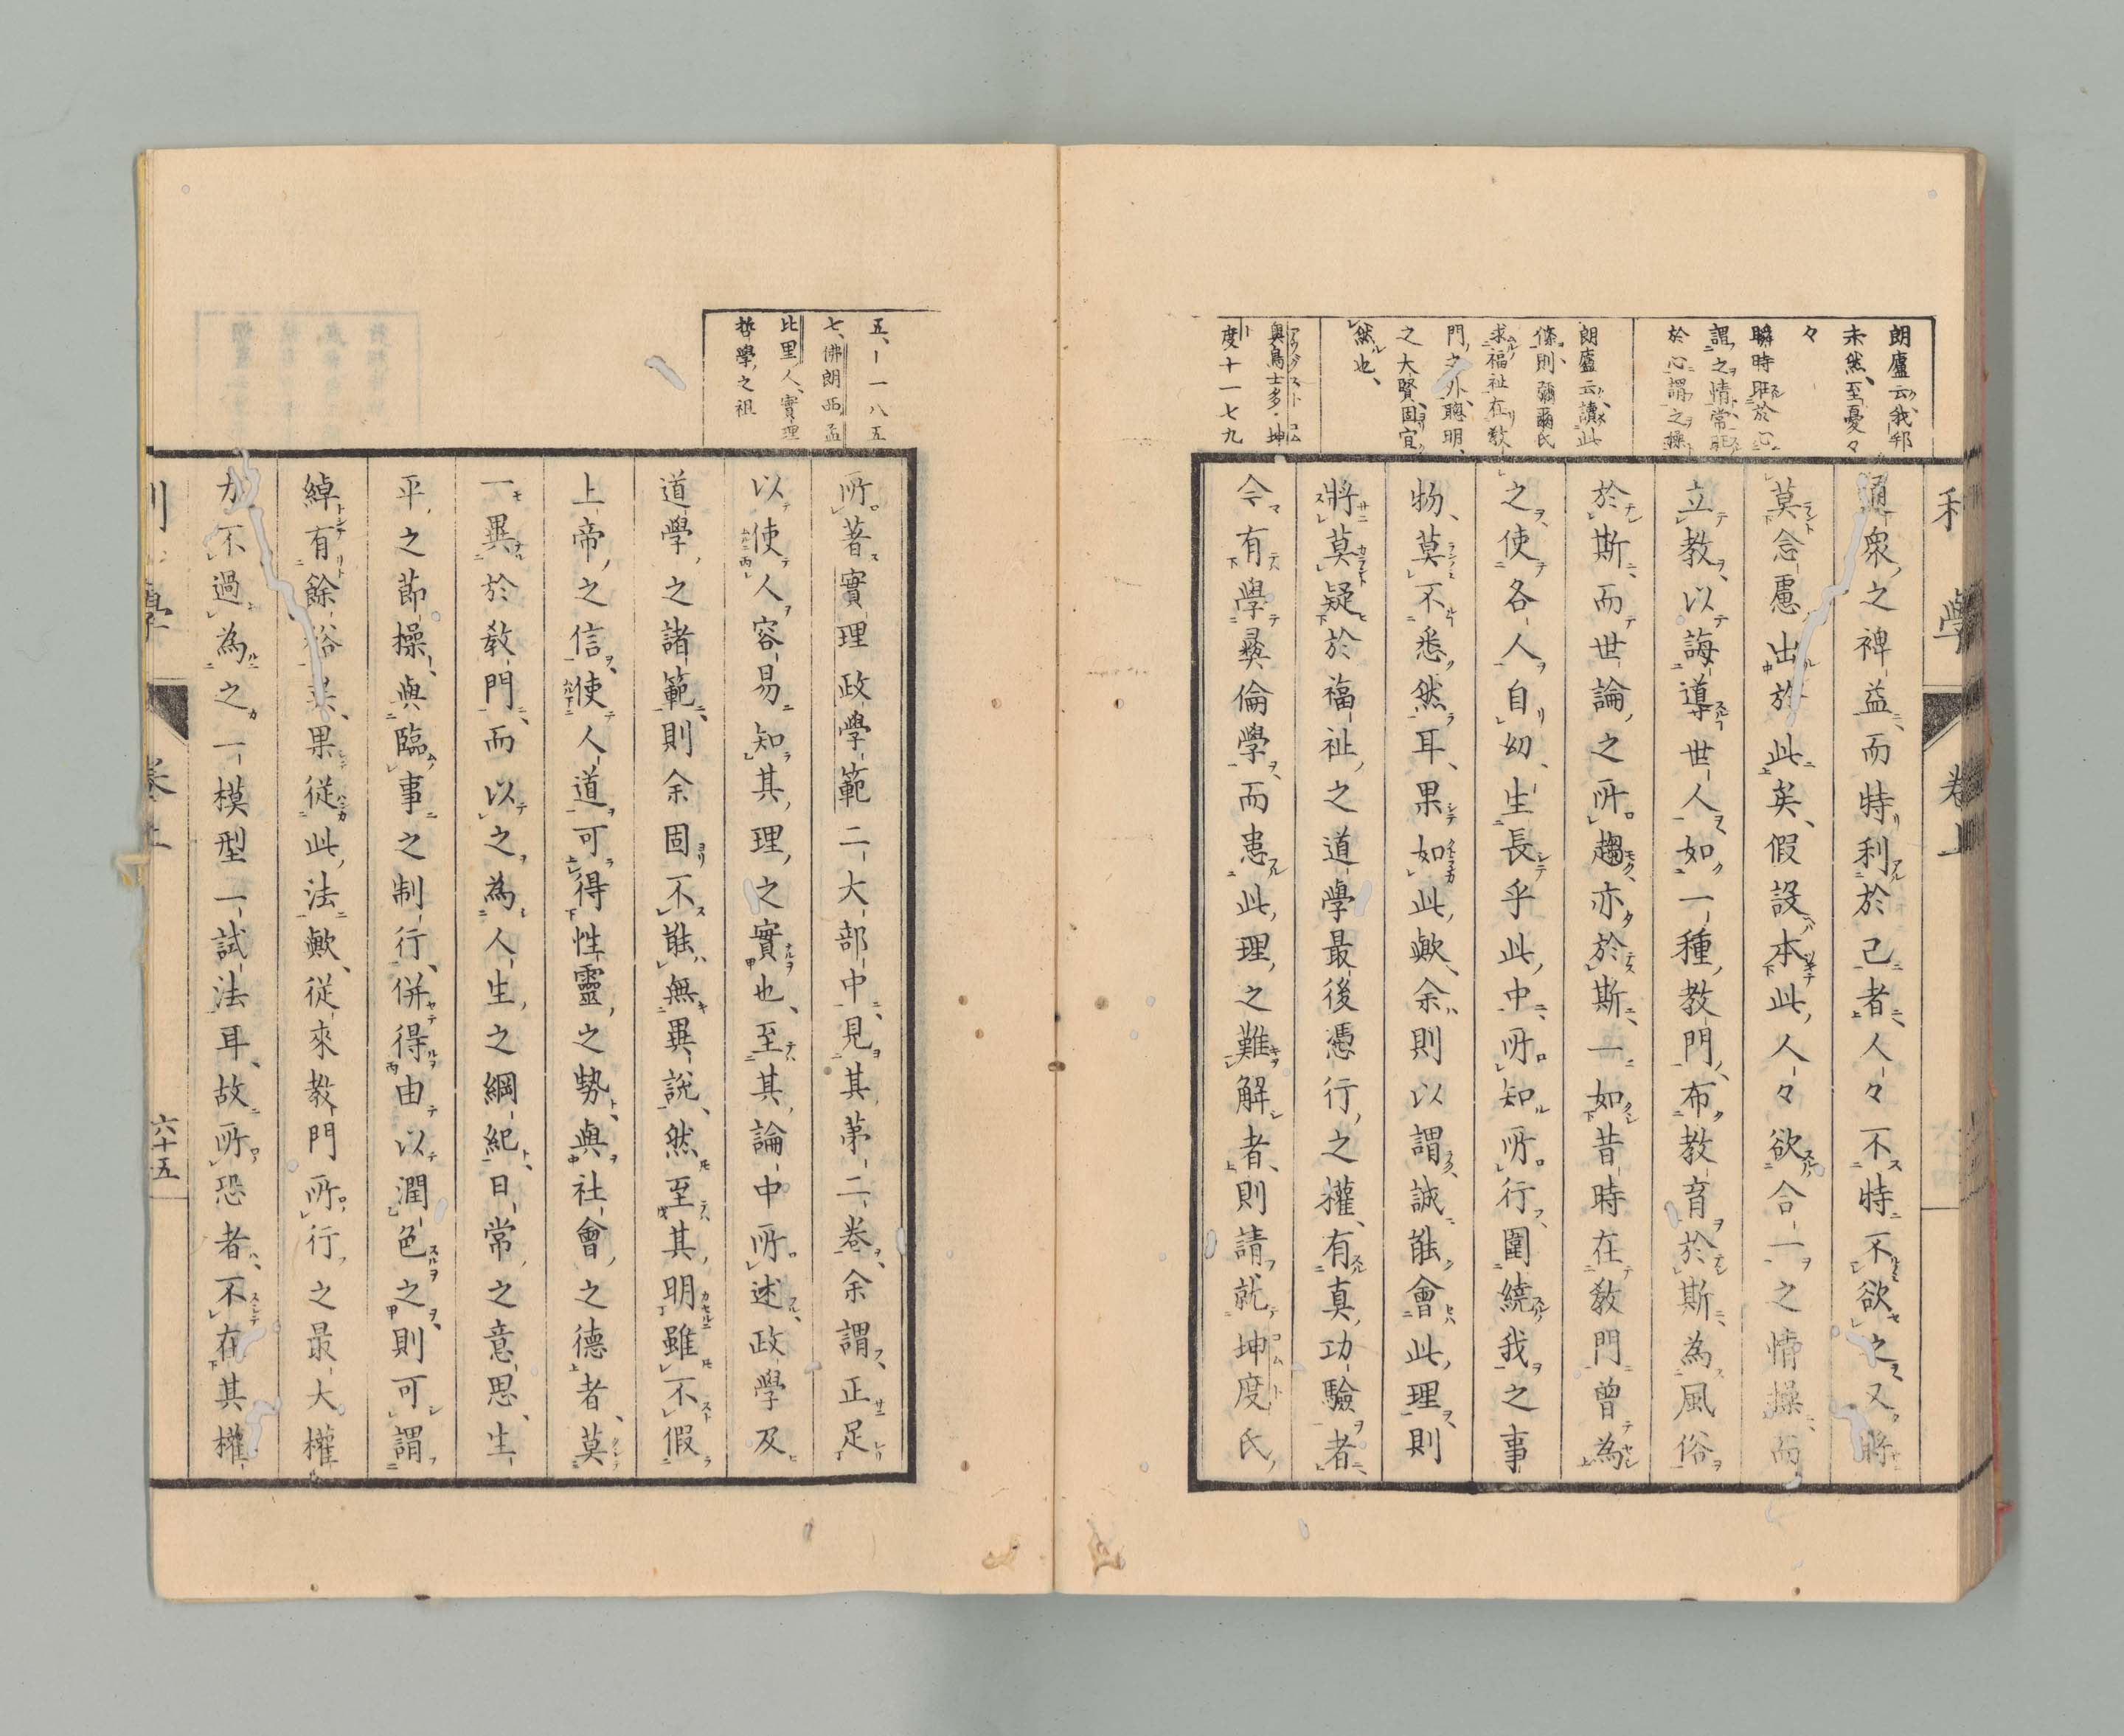 朗廬云我邦
未然、至憂々
々
瞬時旺於心
謂之情常旺
於心謂之操
朗廬云讀此
條則彌爾氏
求福祉在教
門之外聰明、
之大賢固宜
然也、
奧鳥士多·坤
度十一七九
利學 卷上
通衆之裨益而特利於己者人々不特不欲之又將
莫念慮出於此矣、假設本此人々欲合一之情操而
立教以誨導世人如一種教門、布教育於斯為風俗
於斯而世論之所趨亦於斯一如昔時在教門曾為
之使各人自幼、生長乎此中所知所行圍繞我之事
物、莫不悉然耳、果如此歟、余則以謂誠能會此理則
將莫疑於福祉之道學最後憑行之權、有真功驗者
今有學彞倫學而患此理之難解者、則請就坤度氏
五、一一八五
七、佛朗西、孟
比里人、實理
哲學之祖
所著實理政學範二大部中見其第二卷、余謂正足
以使人容易知其理之實也、至其論中所述政學及
道學之諸範則余固不能無異說、然至其明雖不假
上帝之信使人道可得性靈之勢與社會之德者、莫
一異於教門而以之為人生之綱紀日常之意思、生
平之節操、與臨事之制行、併得由以潤色之則可謂
綽有餘裕矣、果從此法歟、從來教門所行之最大權
力不過為之一模型一試法耳、故所恐者不在其權
利學 卷上 六十五